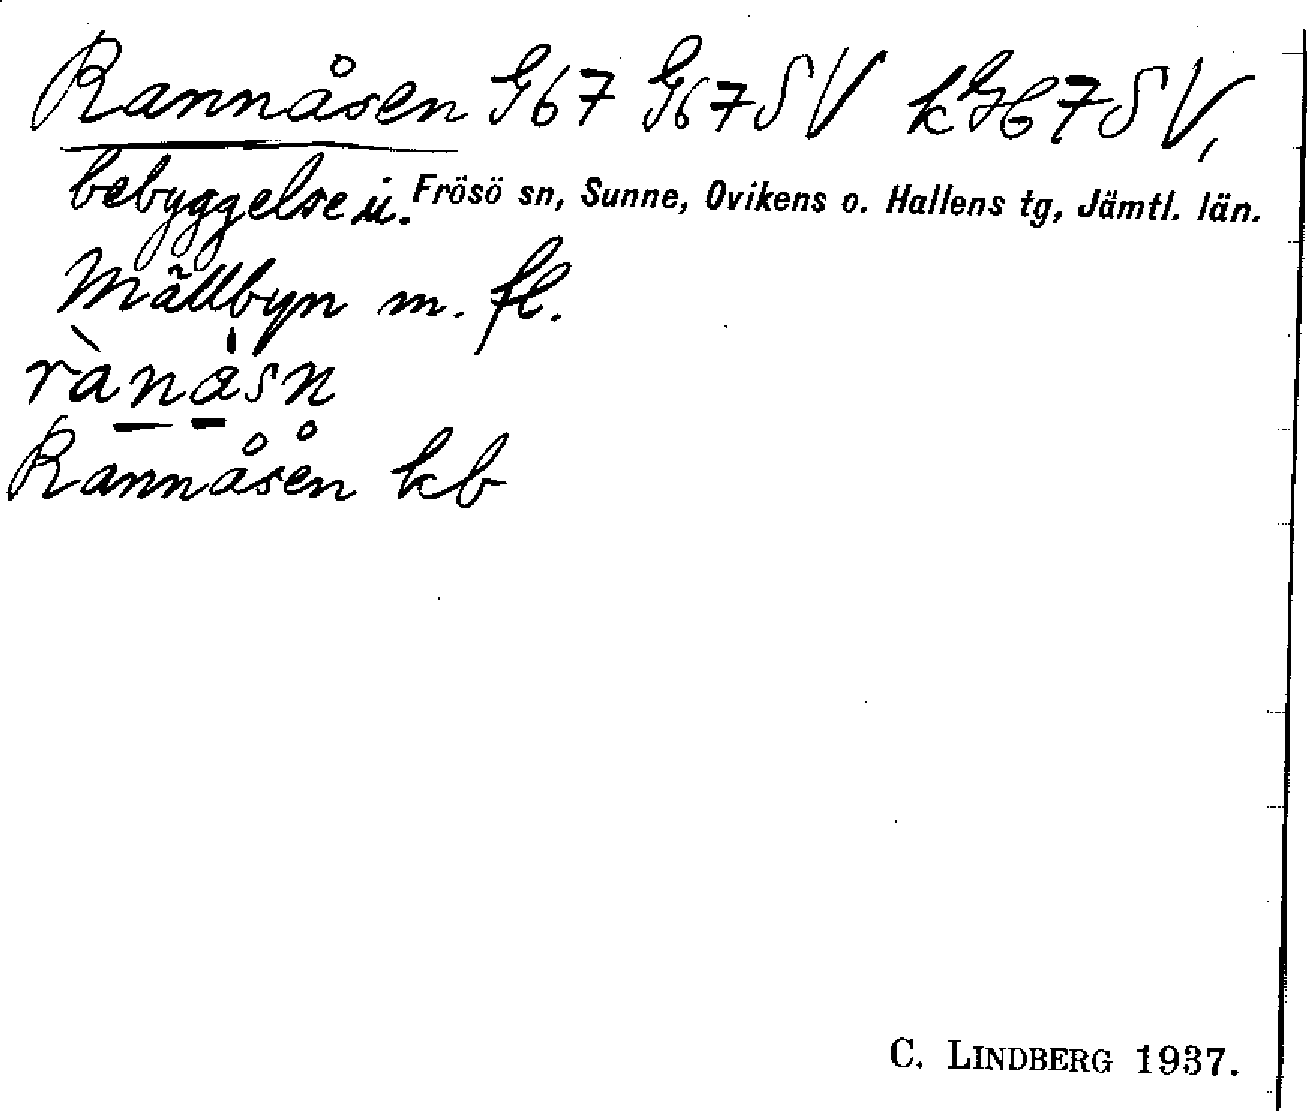 Rannåsen G67 G67SV kG67SV,
bebyggelse i. Frösö sn, Sunne, Ovikens o. Hallens tg, Jämtl. län.
Mällbyn m. fl.
rànåsn
Rannåsen kb
C. LINDBERG 1937.